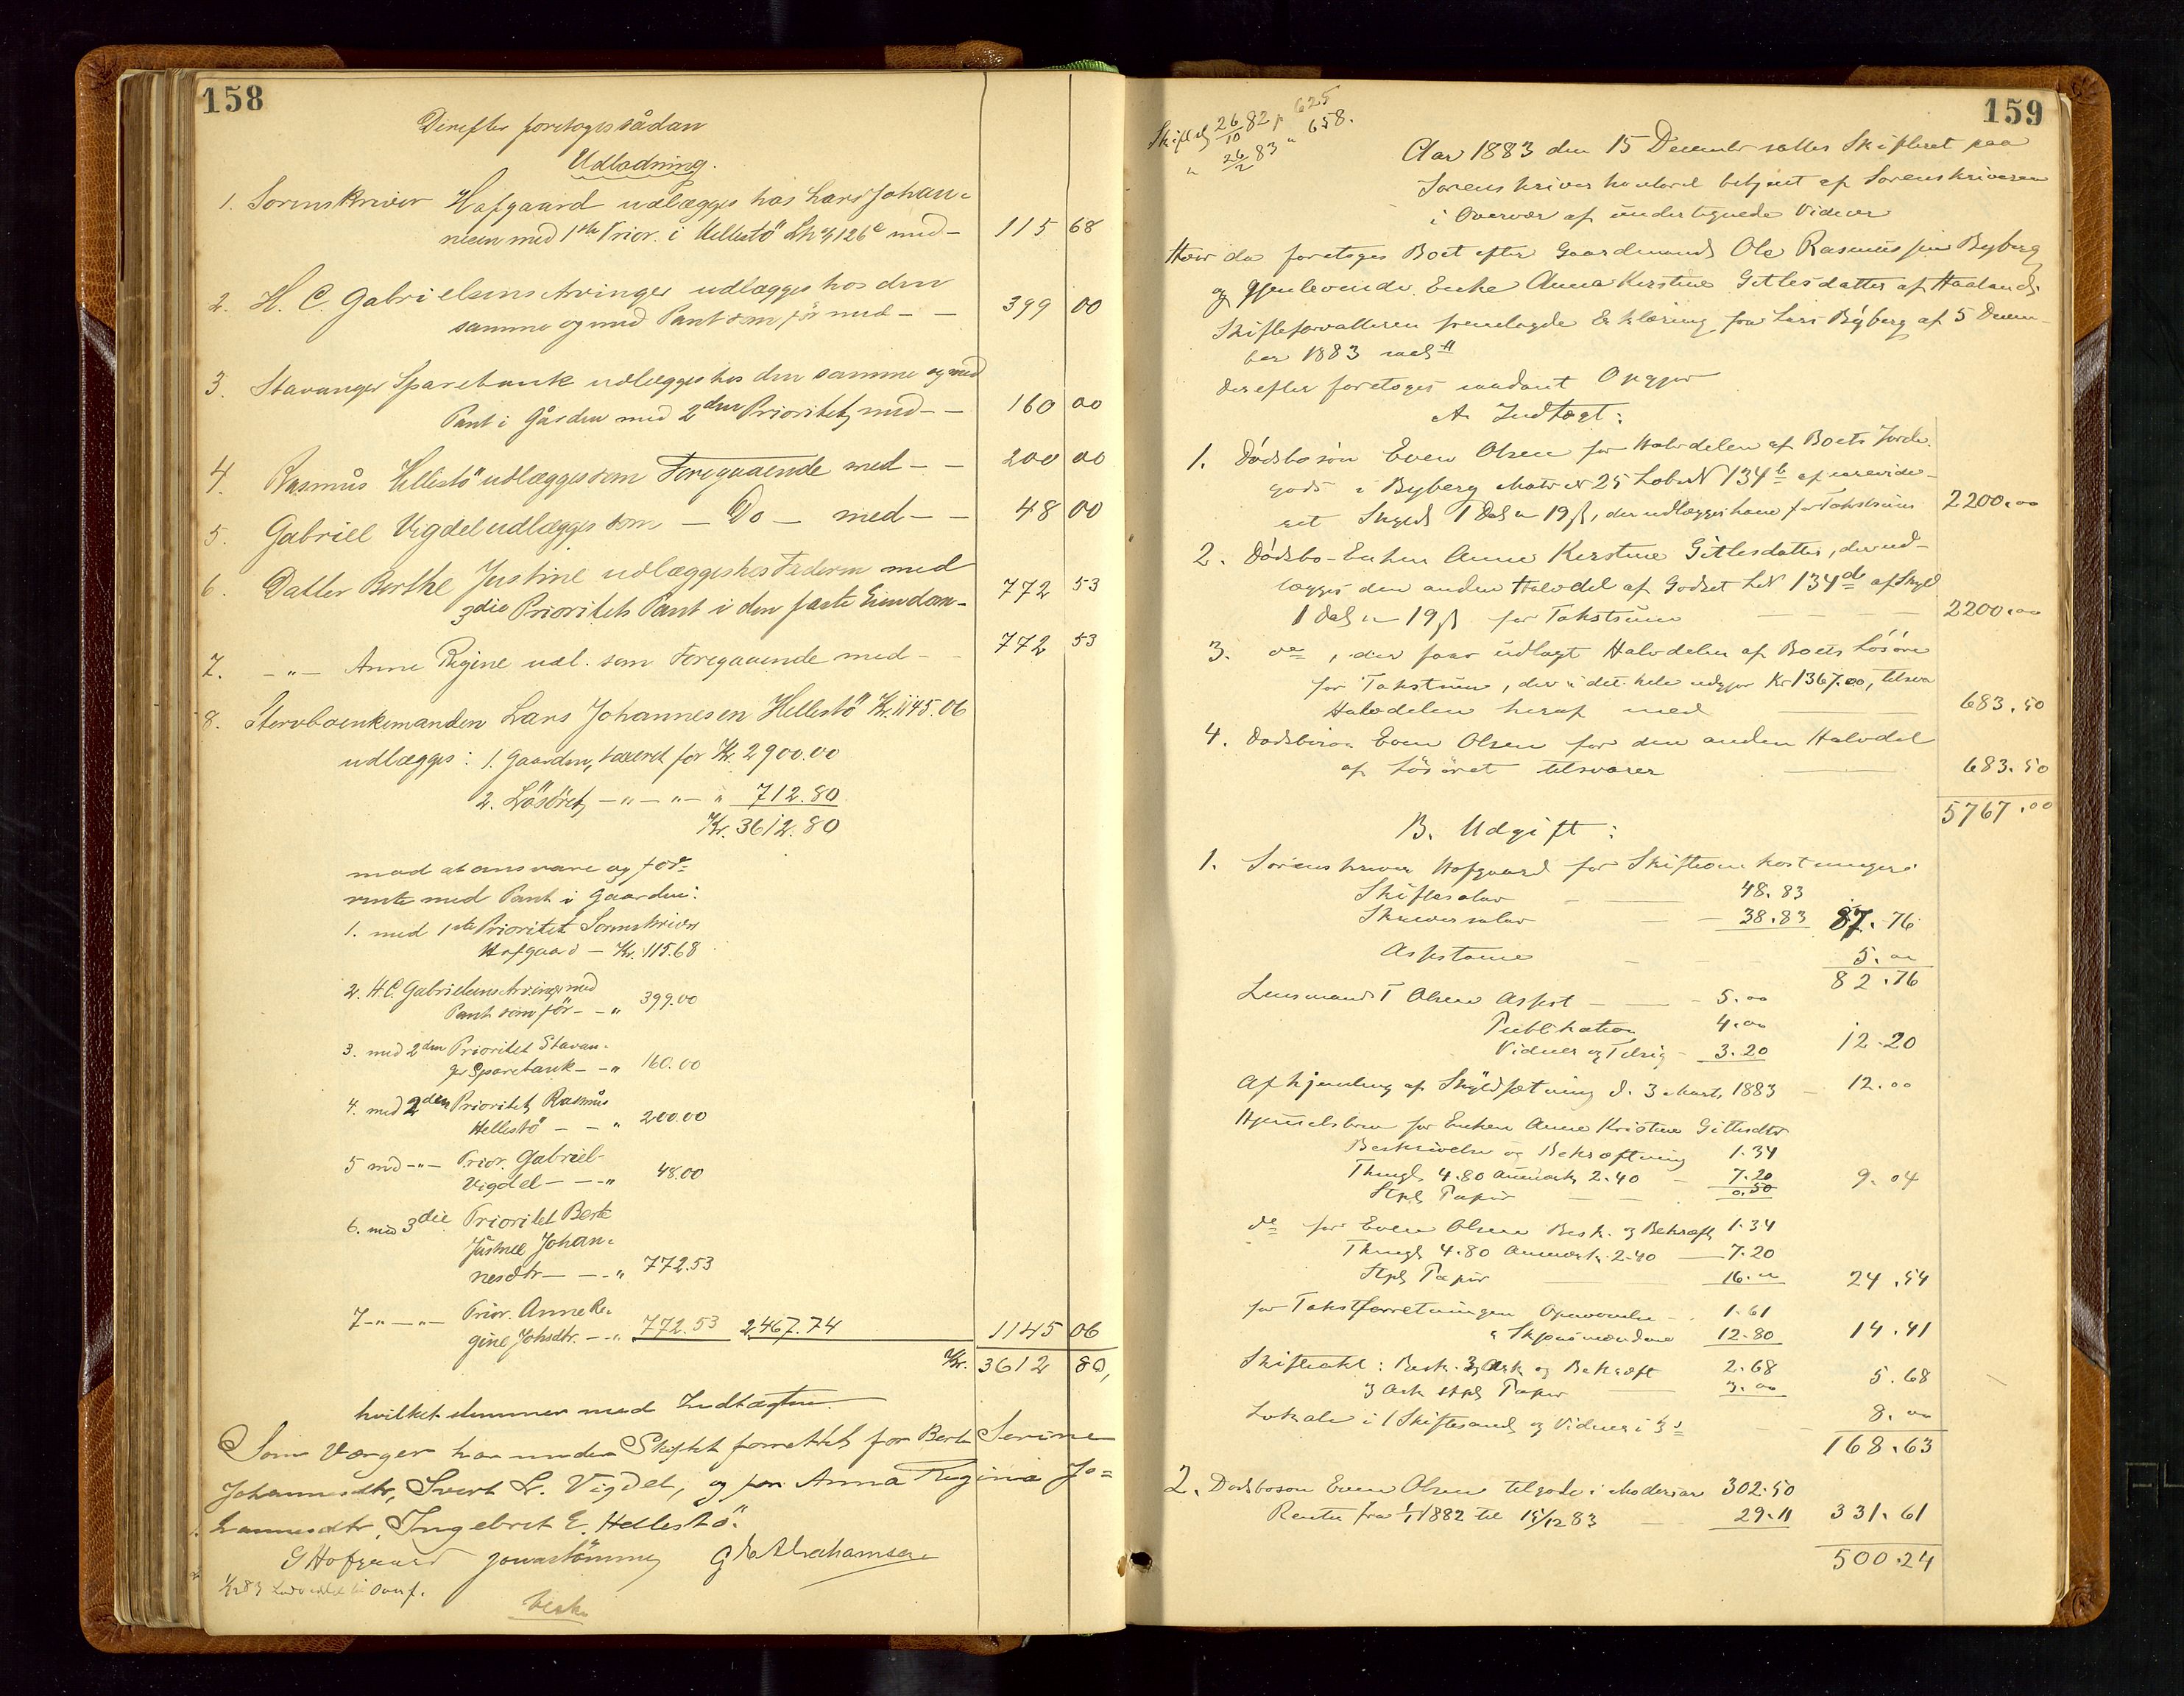 158
Derefter foretoges sådan
Udlodning.
1. Sorenskriver Hofgaard udlægges hos Lars Johan=
nesen med 1ste Prior. i Hellestö Lhn 126c med — 115 68
2. H. C. Gabrielsens Arvinger udlægges hos den
samme og med Pant som för med — — 399 00
3. Stavanger Sparebank udlægges hos den samme og med
Pant i Gården med 2den Prioritet, med — — 160 00
4. Rasmus Hellestö udlægges som Foregaaende med — — 200 00
5. Gabriel Vigdel udlægges som — Do — med — — 48 00
6. Datter Berthe Justine udlægges hos Faderen med
3die Prioritets Pant i den faste Eiendom — 772 53
7. — " — Anne Regine udl. som Foregaaende med — — 772 53
8. Stervboenkemanden Lars Johannesen Hellestö Kr. 1145.06
udlægges: 1. Gaarden, taxeret for Kr. 2900.00
2. Lösöret, — " — " — " 712.80
Kr. 3612.80
mod at ansvare og for=
rente med Pant i Gaarden:
1. med 1ste Prioritet Sorenskriver
Hofgaard — Kr. 115.68
2. H.C. Gabrielsens Arvinger med
Pant som för — — " 399.00
3. med 2den Prioritet Stavan=
ger Sparebank — — " 160.00
4. med 2den Prioritet, Rasmus
Hellestö — — " 200.00
5 med — " — Prior. Gabriel
Vigdel — — — " 48.00
6. med 3die Prioritet Berte
Justine Johan=
nesdtr — — — " 772.53
7 — " — — " — Prior. Anne Re=
gine Johsdtr. — — " 772.53 2467.74 1145 06
Kr. 3612 80,
hvilket stemmer med Indtægten.
Som Værger har under Skiftet forrettet for Berte Serine
Johannesdtr, Sivert L. Vigdel, og for Anna Regina Jo=
hannesdtr, Ingebret E. Hellestö.
G Hofgaard Jonas Tömmer G N Abrahamsen
besk
159
Skiftep 26/10 82 p 625
" 26/2 83 " 658.
Aar 1883 den 15 December sattes Skifteret paa
Sorenskriverkontoret betjent af Sorenskriveren
i Overvær af undertegnede Vidner
Hvor da foretoges Boet efter Gaardmand Ole Rasmussen Byberg
og gjenlevende Enke Anna Kirstine Gitlesdatter af Haaland.
Skifteforvalteren fremlagde Erklæring fra Lars Byberg af 5 Decem-
ber 1883
Derefter foretoges saadant Opgjør
A. Indtægt:
1. Dødsbosøn Even Olsen for Halvdelen af Boets Jorde-
gods i Byberg Matr N 25 Lob N 134b af urevide-
ret Skyld 1 Dal " 19 ß, der udlægges ham for Takstsum 2200.00
2. Dødsbo-Enken Anne Kirstine Gitlesdatter, der ud-
lægges den anden Halvdel af Godset LN 134d af Skyld
1 Dal " 19 ß for Takstsum — — — 2200.00
3. do, der faar udlagt Halvdelen af Boets Løsøre
for Takstsum, der i det hele udgjør Kr 1367.00, tilsva
Halvdelen heraf med — 683.50
4. Dødsbosøn Even Olsen for den anden Halvdel
af Løsøret tilsvarer — 683.50
5767.00
B. Udgift:
1. Sorenskriver Hofgaard for Skifteomkostninger:
Skiftesalær — — 48.83
Skriversalær — — 38.83 87.76
Assistance — — — 5.00
82.76
Lensmand T Olsen Assist — — 5.00
Publikation 4.00
Vidner og Tilsig — 3.20 12.20
Afhjemling af Skyldsætning d. 3 Marts 1883 — 12.00
Hjemmelsbrev for Enken Anne Kirstine Gitlesdtr
Beskrivelse og Bekræftning 1.34
Thingl 4.80 Anmærk 2.40 — 7.20
Stpl Papir — — 0.50 9.04
do for Even Olsen Besk. og Bekræft 1.34
Thingl 4.80 Anmærk. 2.40 — 7.20
Stpl Papir — 16.00 24.54
for Takstforretningen Oprævnelse — 1.61
" Skjønsmændene 12.80 14.41
Skifteakt: Besk. 3 Ark og Bekræft 2.68
3 Ark stpl Papir — 3.00 5.68
Lokale i 1 Skiftesaml og Vidner i 3 do — 8.00
168.63
2. Dødsbosøn Even Olsen tilgode i Mødrearv 302.50
Renter fra 1/1 1882 til 15/12 83 — 29.11 331.61
500.24